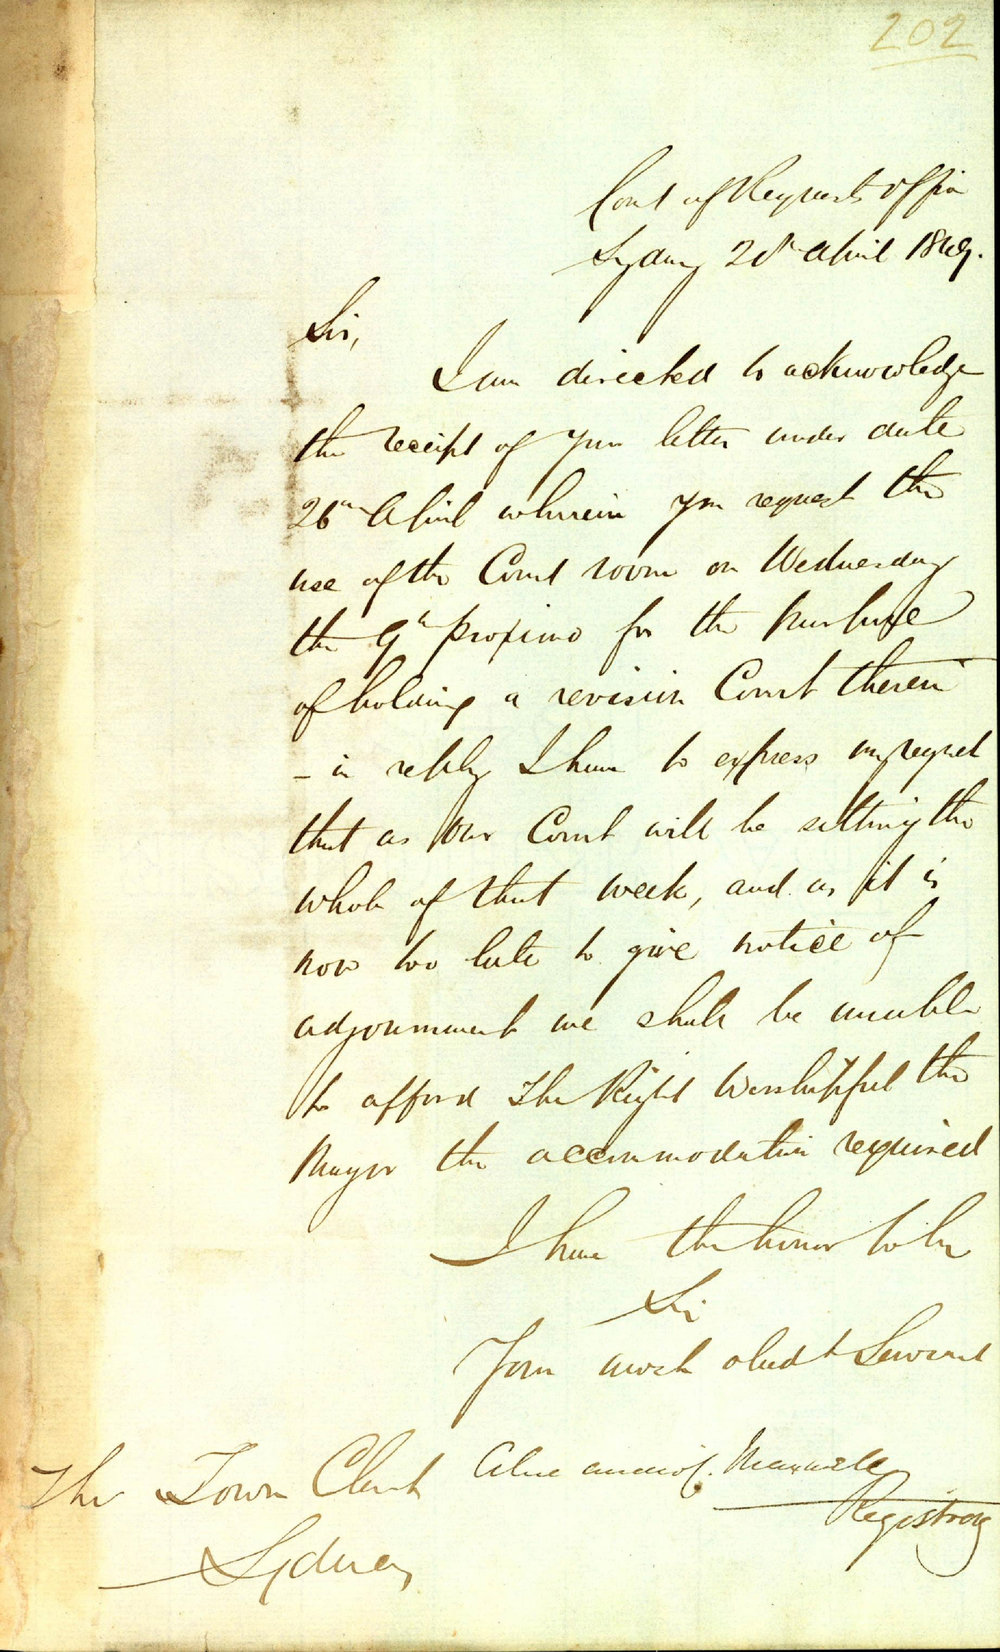 202
Court of Requests Office
Sydney 28th April 1849.
Sir,
I am directed to acknowledge
the receipt of your letter under date
26th April wherein you request the
use of the Court room on Wednesday
the 9th proximo for the purpose
of holding a revision Court therein
- in reply I have to express my regret
that as our Court will be sitting the
whole of that week, and as it is
now too late to give notice of
adjournment we shall be unable
to afford The Right Worshipful the
Mayor the accommodation required
I have the honor to be
Sir
Your most obedt Servant
Maxwell
Registrar
The Town Clerk
Sydney